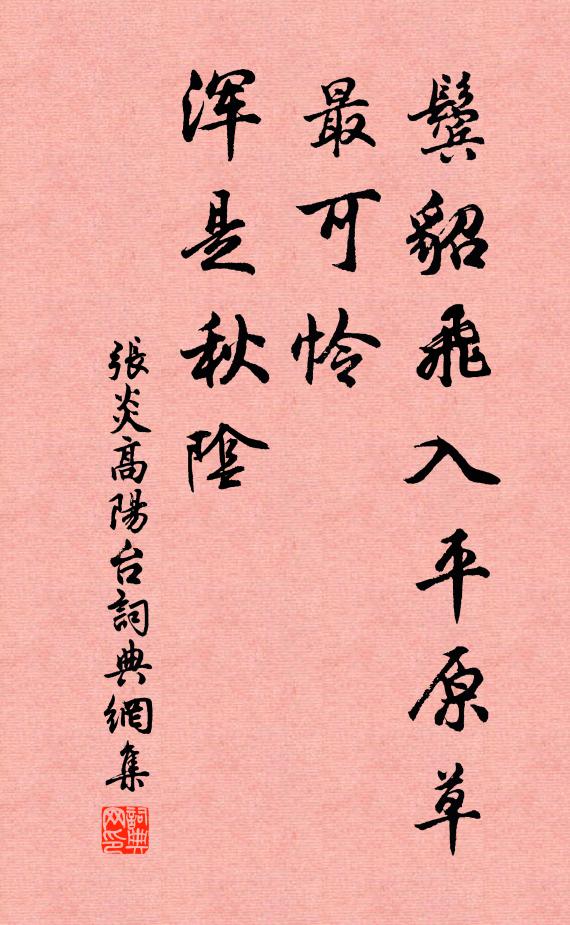 鬓貂飛入平原草
最可怜
浑是秋陰
張炎高陽台詞典網集
詞典网印